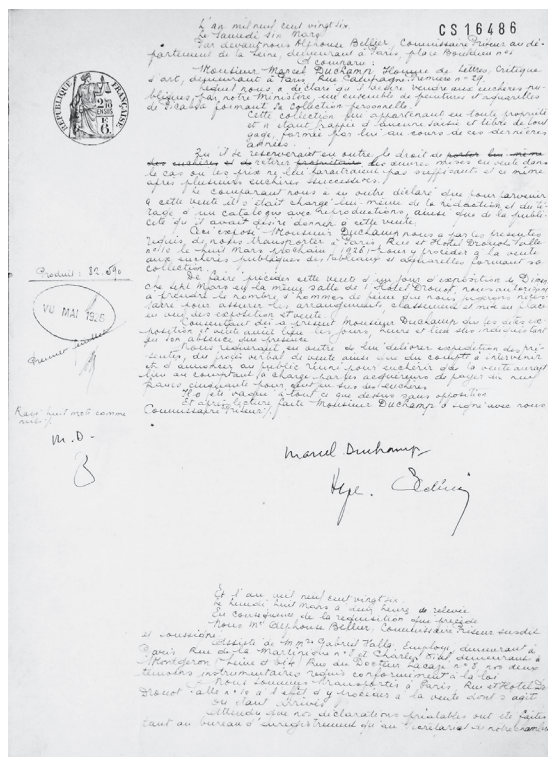 L'an mil neuf cent vingt six
Le Samedi six Mars
CS16486
Par devant nous Alphonse Bellier, Commissaire Priseur au dé-
partement de la Seine, demeurant à Paris, place Boieldieu n°1
A comparu:
Monsieur Marcel Duchamp Homme de lettres, Critique
d'art, demeurant à Paris, Rue Campagne Première n° 29,
Lequel nous a déclaré qu'il désire vendre aux enchères pu-
bliques, par notre Ministère un ensemble de peintures et aquarelles
de Picabia formant sa collection personnelle.
Cette collection lui appartenant en toute propriété
et n'étant frappée d'aucune saisie et libre de tout
gage, formée par lui au cours de ces dernières
années.
Qu'il se réserverait en outre le droit de
retirer les œuvres mises en vente dans
le cas où les prix ne lui paraîtraient pas suffisants et ce même
après plusieurs enchères successives.
Le comparant nous a en outre déclaré que pour parvenir
à cette vente il s'était chargé lui-même de la rédaction et du ti-
rage d'un catalogue avec reproductions, ainsi que de la publi-
cité qu'il avait désiré donner à cette vente.
Ceci exposé Monsieur Duchamp nous a par les présentes
requis de nous transporter à Paris, Rue et Hôtel Drouot salle
n°10 le huit Mars prochain 1926 pour y procéder à la vente
aux enchères publiques des tableaux et aquarelles formant sa
collection.
De faire précéder cette vente d'un jour d'exposition le Diman-
che sept Mars en la même salle de l'Hôtel Drouot, nous autorisant
à prendre le nombre d'hommes de peine que nous jugerons néces-
saire pour assurer les arrangements, classement et mise en place
en vue des exposition et vente.
Consentant dès à présent Monsieur Duchamp que les dites ex-
position et vente aient lieu les jours, heures et lieu sus indiqués tant
en son absence que présence
Nous requérant en outre de lui délivrer expédition des pré-
sentes, du procès verbal de vente ainsi que du compte à intervenir
et d'annoncer au public réuni pour enchérir que la vente aurait
lieu au comptant à charge par les acquéreurs de payer dix neuf
francs cinquante pour cent en sus des enchères.
Il a été vaqué à tout ce que dessus sans opposition
Et après lecture faite Monsieur Duchamp a signé avec nous
Commissaire Priseur
RÉPUBLIQUE FRANÇAISE
Produit: 82.590
MAI 1926
Rayé huit mots comme
nuls
M.D.
Marcel Duchamp
Et l'an mil neuf cent vingt six
Le lundi huit Mars à deux heures de relevée
En conséquence de la réquisition qui précède
Nous Me Alphonse Bellier, Commissaire Priseur susdit
et soussigné
Assisté de MMrs Gabriel Valla, Employé, demeurant à
Paris Rue de la Martinique n° 8 et Charles demeurant à
Montgeron (Seine et Oise) Rue du Docteur Lacaze n° 8, nos deux
témoins instrumentaires requis conformément à la loi
Nous sommes transportés à Paris, Rue et Hôtel
Drouot salle n°10 à l'effet d'y procéder à la vente dont s'agit
Où étant arrivés
Attendu que nos déclarations préalables ont été faites
tant au bureau d'enregistrement qu'au secrétariat de notre chambre